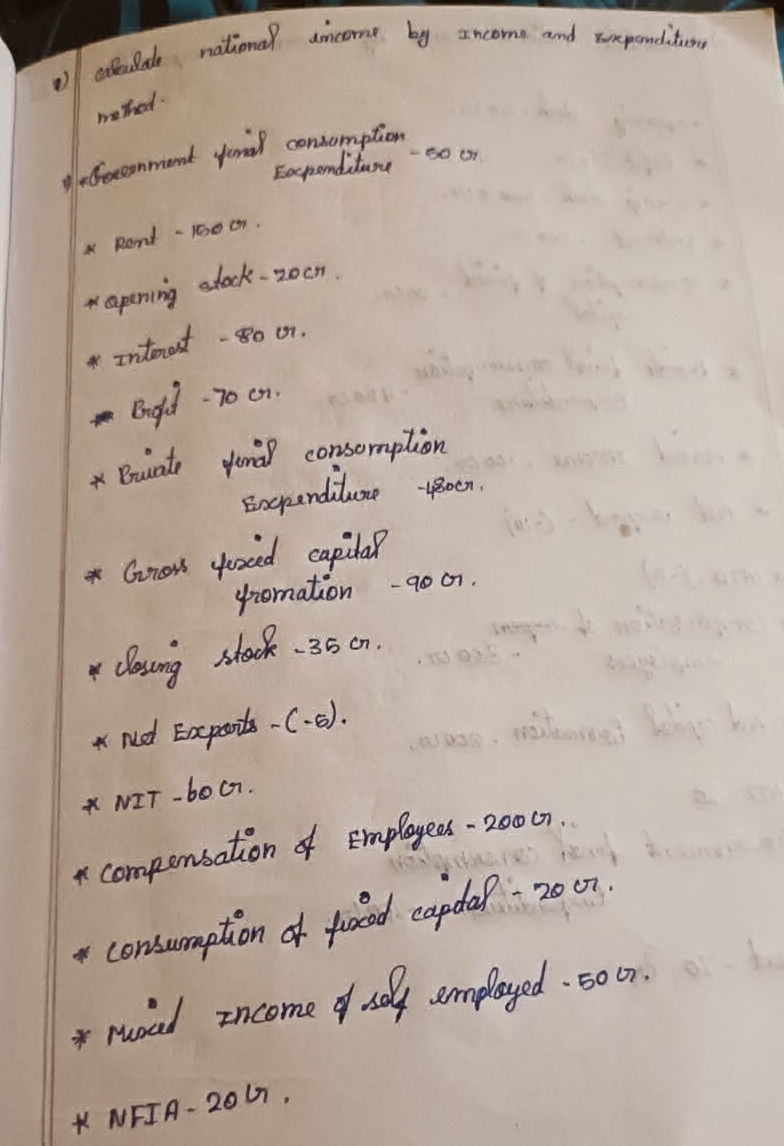 calculate national income by Income and Expenditure
method.
* Government final consumption
Expenditure - 60 cr.
* Rent - 150 cr.
* opening stock - 20 cr.
* Interest - 80 cr.
* Profit - 70 cr.
* Private final consumption
Expenditure - 480 cr.
* Gross fixed capital
fromation - 90 cr.
* closing stock - 35 cr.
* Net Exports - (-5).
* NIT - 60 cr.
* compensation of Employees - 200 cr.
* consumption of fixed capital - 20 cr.
* Mixed Income of self employed - 50 cr.
* NFIA - 20 cr.